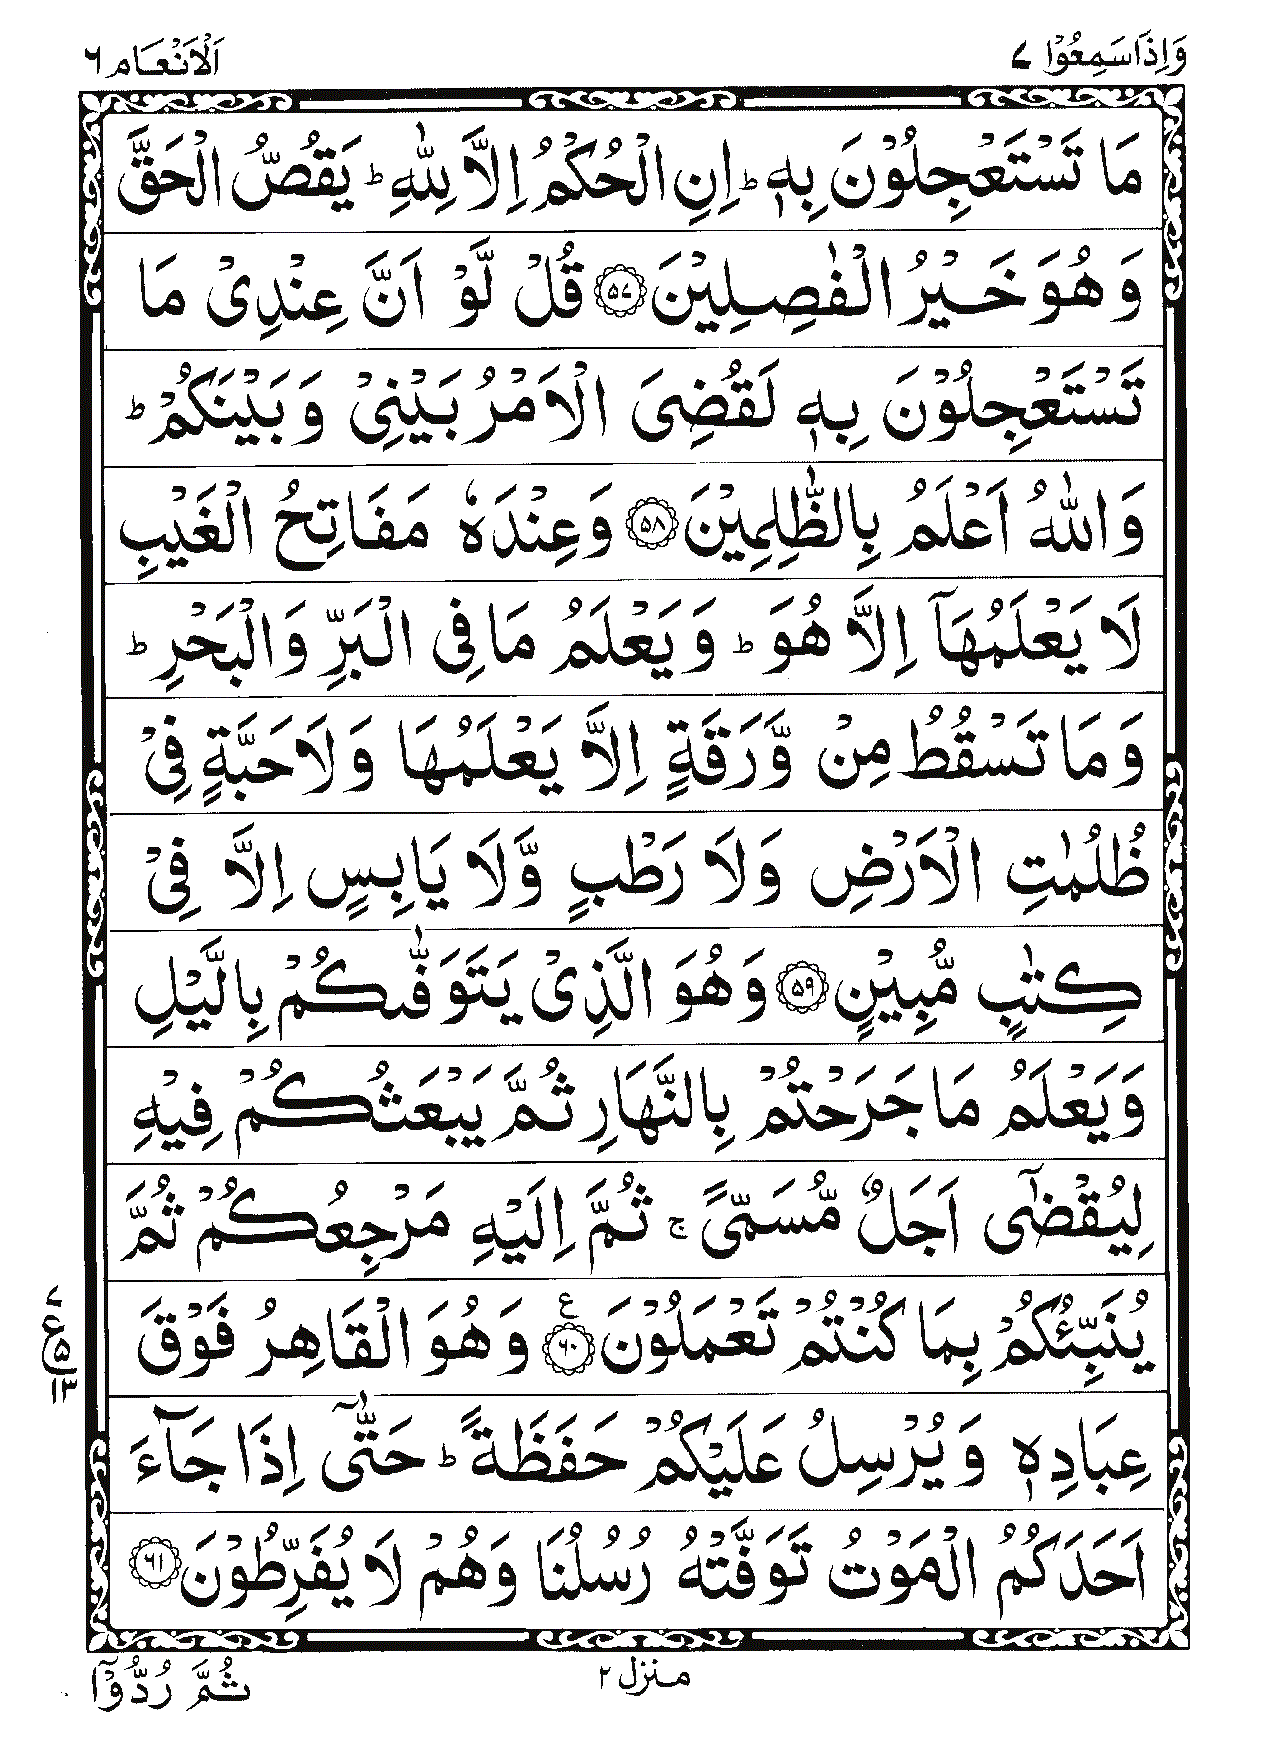 وَاِذَاسَمِعُوْا ٧ اَلْاَنْعَام ٦
مَا تَسْتَعْجِلُوْنَ بِهٖ ؕ اِنِ الْحُكْمُ اِلَّا لِلّٰهِ ؕ يَقُصُّ الْحَقَّ
وَهُوَ خَيْرُ الْفٰصِلِيْنَ ٥٧ قُلْ لَّوْ اَنَّ عِنْدِىْ مَا
تَسْتَعْجِلُوْنَ بِهٖ لَقُضِىَ الْاَمْرُ بَيْنِىْ وَبَيْنَكُمْ ؕ
وَاللّٰهُ اَعْلَمُ بِالظّٰلِمِيْنَ ٥٨ وَعِنْدَهٗ مَفَاتِحُ الْغَيْبِ
لَا يَعْلَمُهَاۤ اِلَّا هُوَ ؕ وَيَعْلَمُ مَا فِى الْبَرِّ وَالْبَحْرِ ؕ
وَمَا تَسْقُطُ مِنْ وَّرَقَةٍ اِلَّا يَعْلَمُهَا وَلَا حَبَّةٍ فِىْ
ظُلُمٰتِ الْاَرْضِ وَلَا رَطْبٍ وَّلَا يَابِسٍ اِلَّا فِىْ
كِتٰبٍ مُّبِيْنٍ ٥٩ وَهُوَ الَّذِىْ يَتَوَفّٰٮكُمْ بِالَّيْلِ
وَيَعْلَمُ مَا جَرَحْتُمْ بِالنَّهَارِ ثُمَّ يَبْعَثُكُمْ فِيْهِ
لِيُقْضٰٓى اَجَلٌ مُّسَمًّى ۚ ثُمَّ اِلَيْهِ مَرْجِعُكُمْ ثُمَّ
يُنَبِّئُكُمْ بِمَا كُنْتُمْ تَعْمَلُوْنَ ٦٠ ع وَهُوَ الْقَاهِرُ فَوْقَ
٧
ع ٥
١٣
عِبَادِهٖ وَيُرْسِلُ عَلَيْكُمْ حَفَظَةً ؕ حَتّٰٓى اِذَا جَآءَ
اَحَدَكُمُ الْمَوْتُ تَوَفَّتْهُ رُسُلُنَا وَهُمْ لَا يُفَرِّطُوْنَ ٦١
منزل ٢
ثُمَّ رُدُّوْۤا